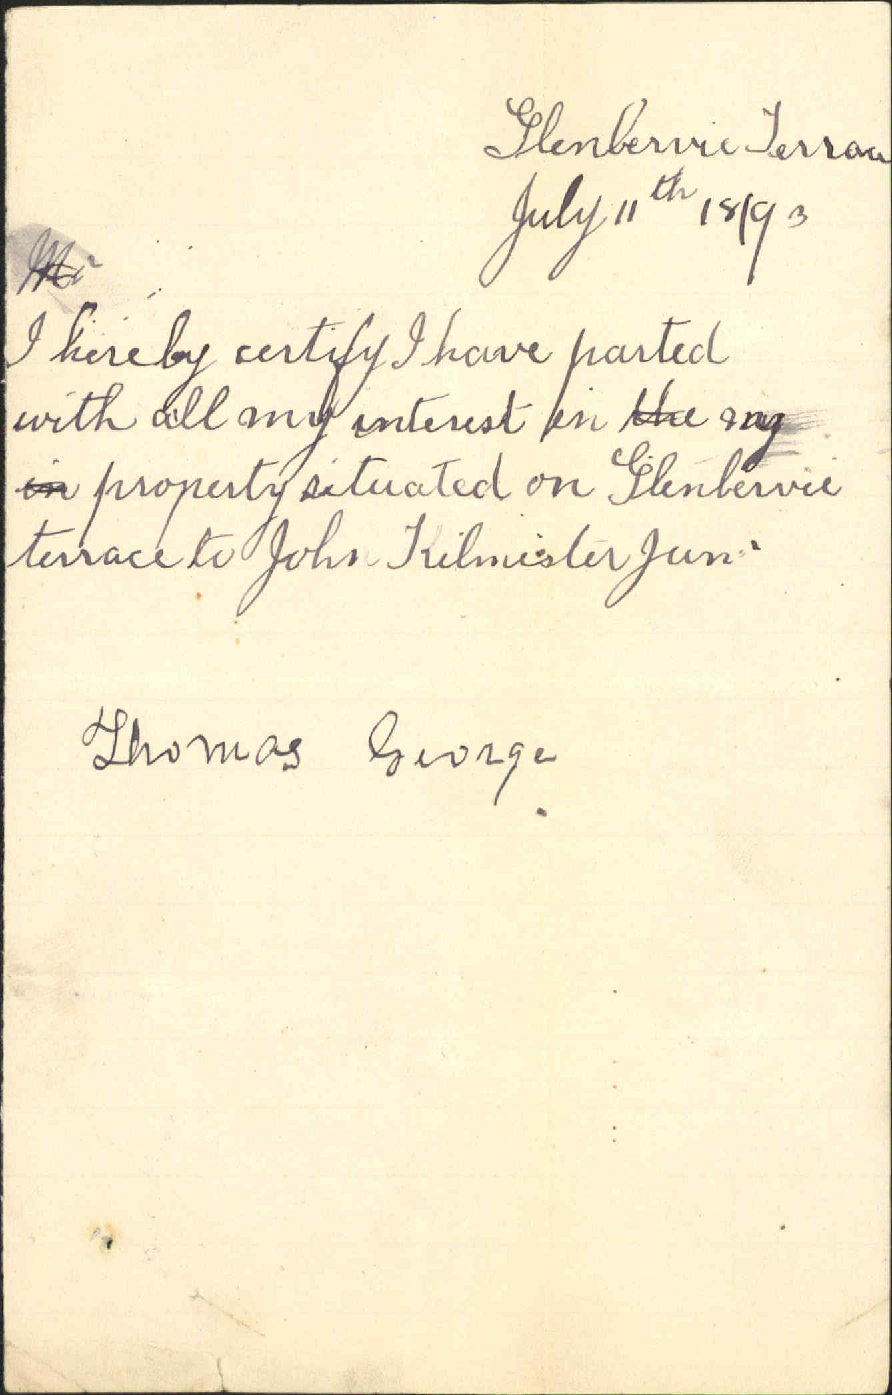 Glenbervie Terrace
July 11th 18/93
Mr
I hereby certify I have parted
with all my interest in the my
in property situated on Glenbervie
terrace to John Kilmister Junr
Thomas George